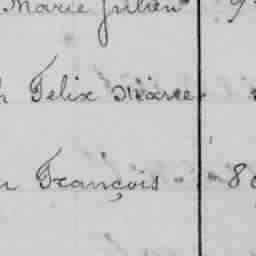 Marie Julien 9
Felix Marcel
François - 8